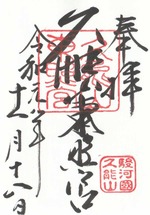 奉拝
久能山東照宮
駿河國
久能山
令和元年
十一月十八日